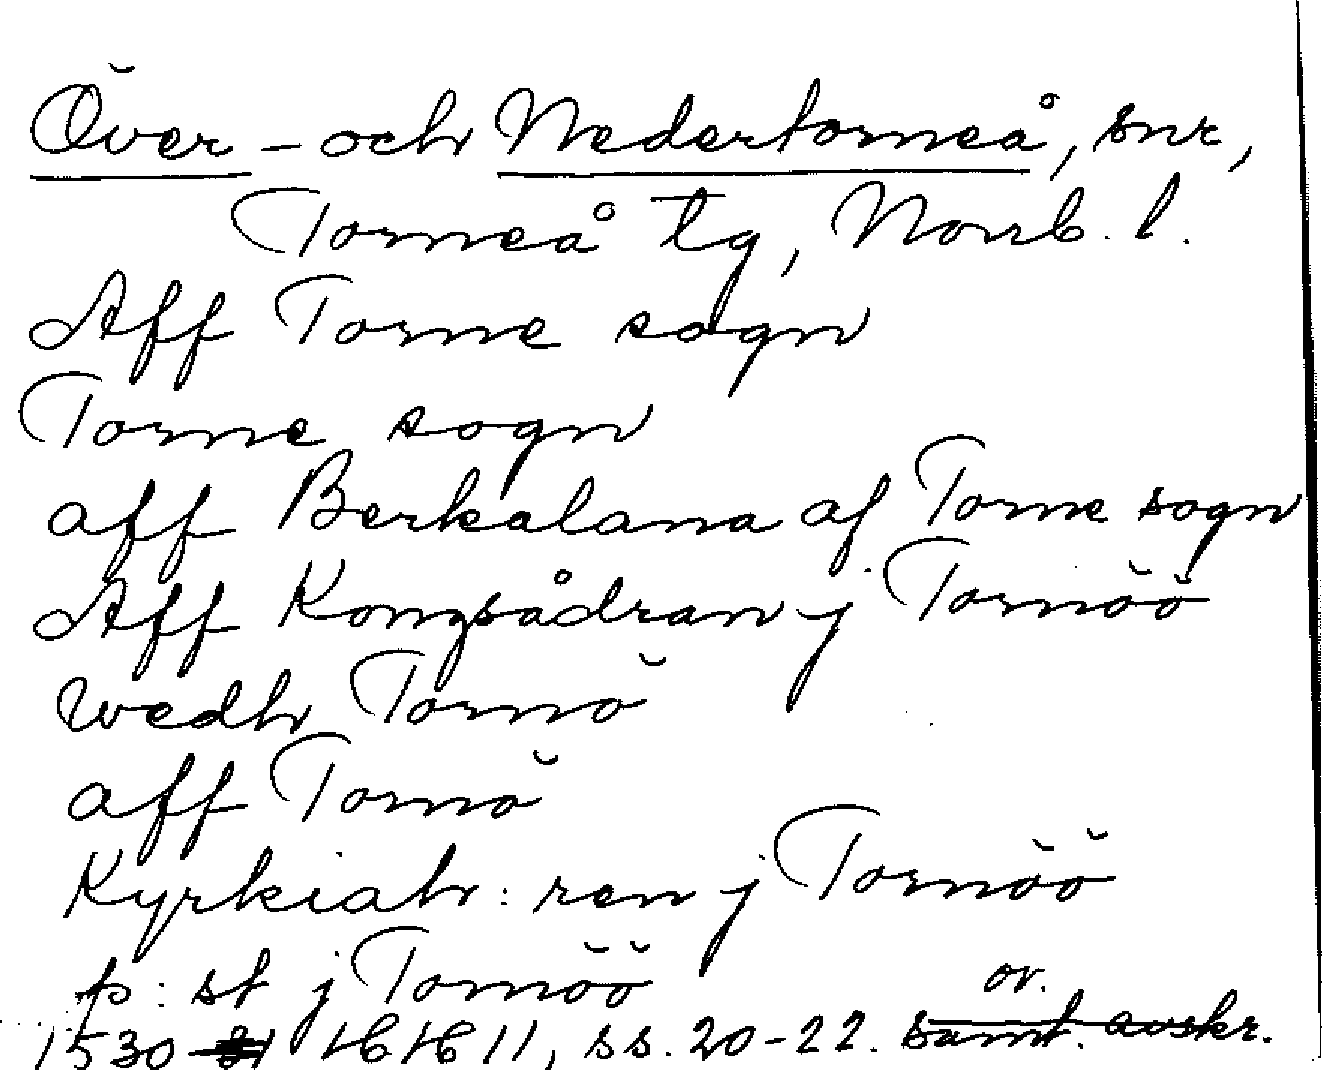 Över- och Nedertorneå, snr,
Torneå tg, Norrb. l.
Aff Torne sogn
Torne sogn
aff Berkalana af Torne sogn
Aff Kongsådran j Tornöö
wedh Tornö
aff Tornö
Kyrkiah: ren j Tornöö
p: st j Tornöö
or.
1530 HH 11, ss. 20-22. samt. avskr.